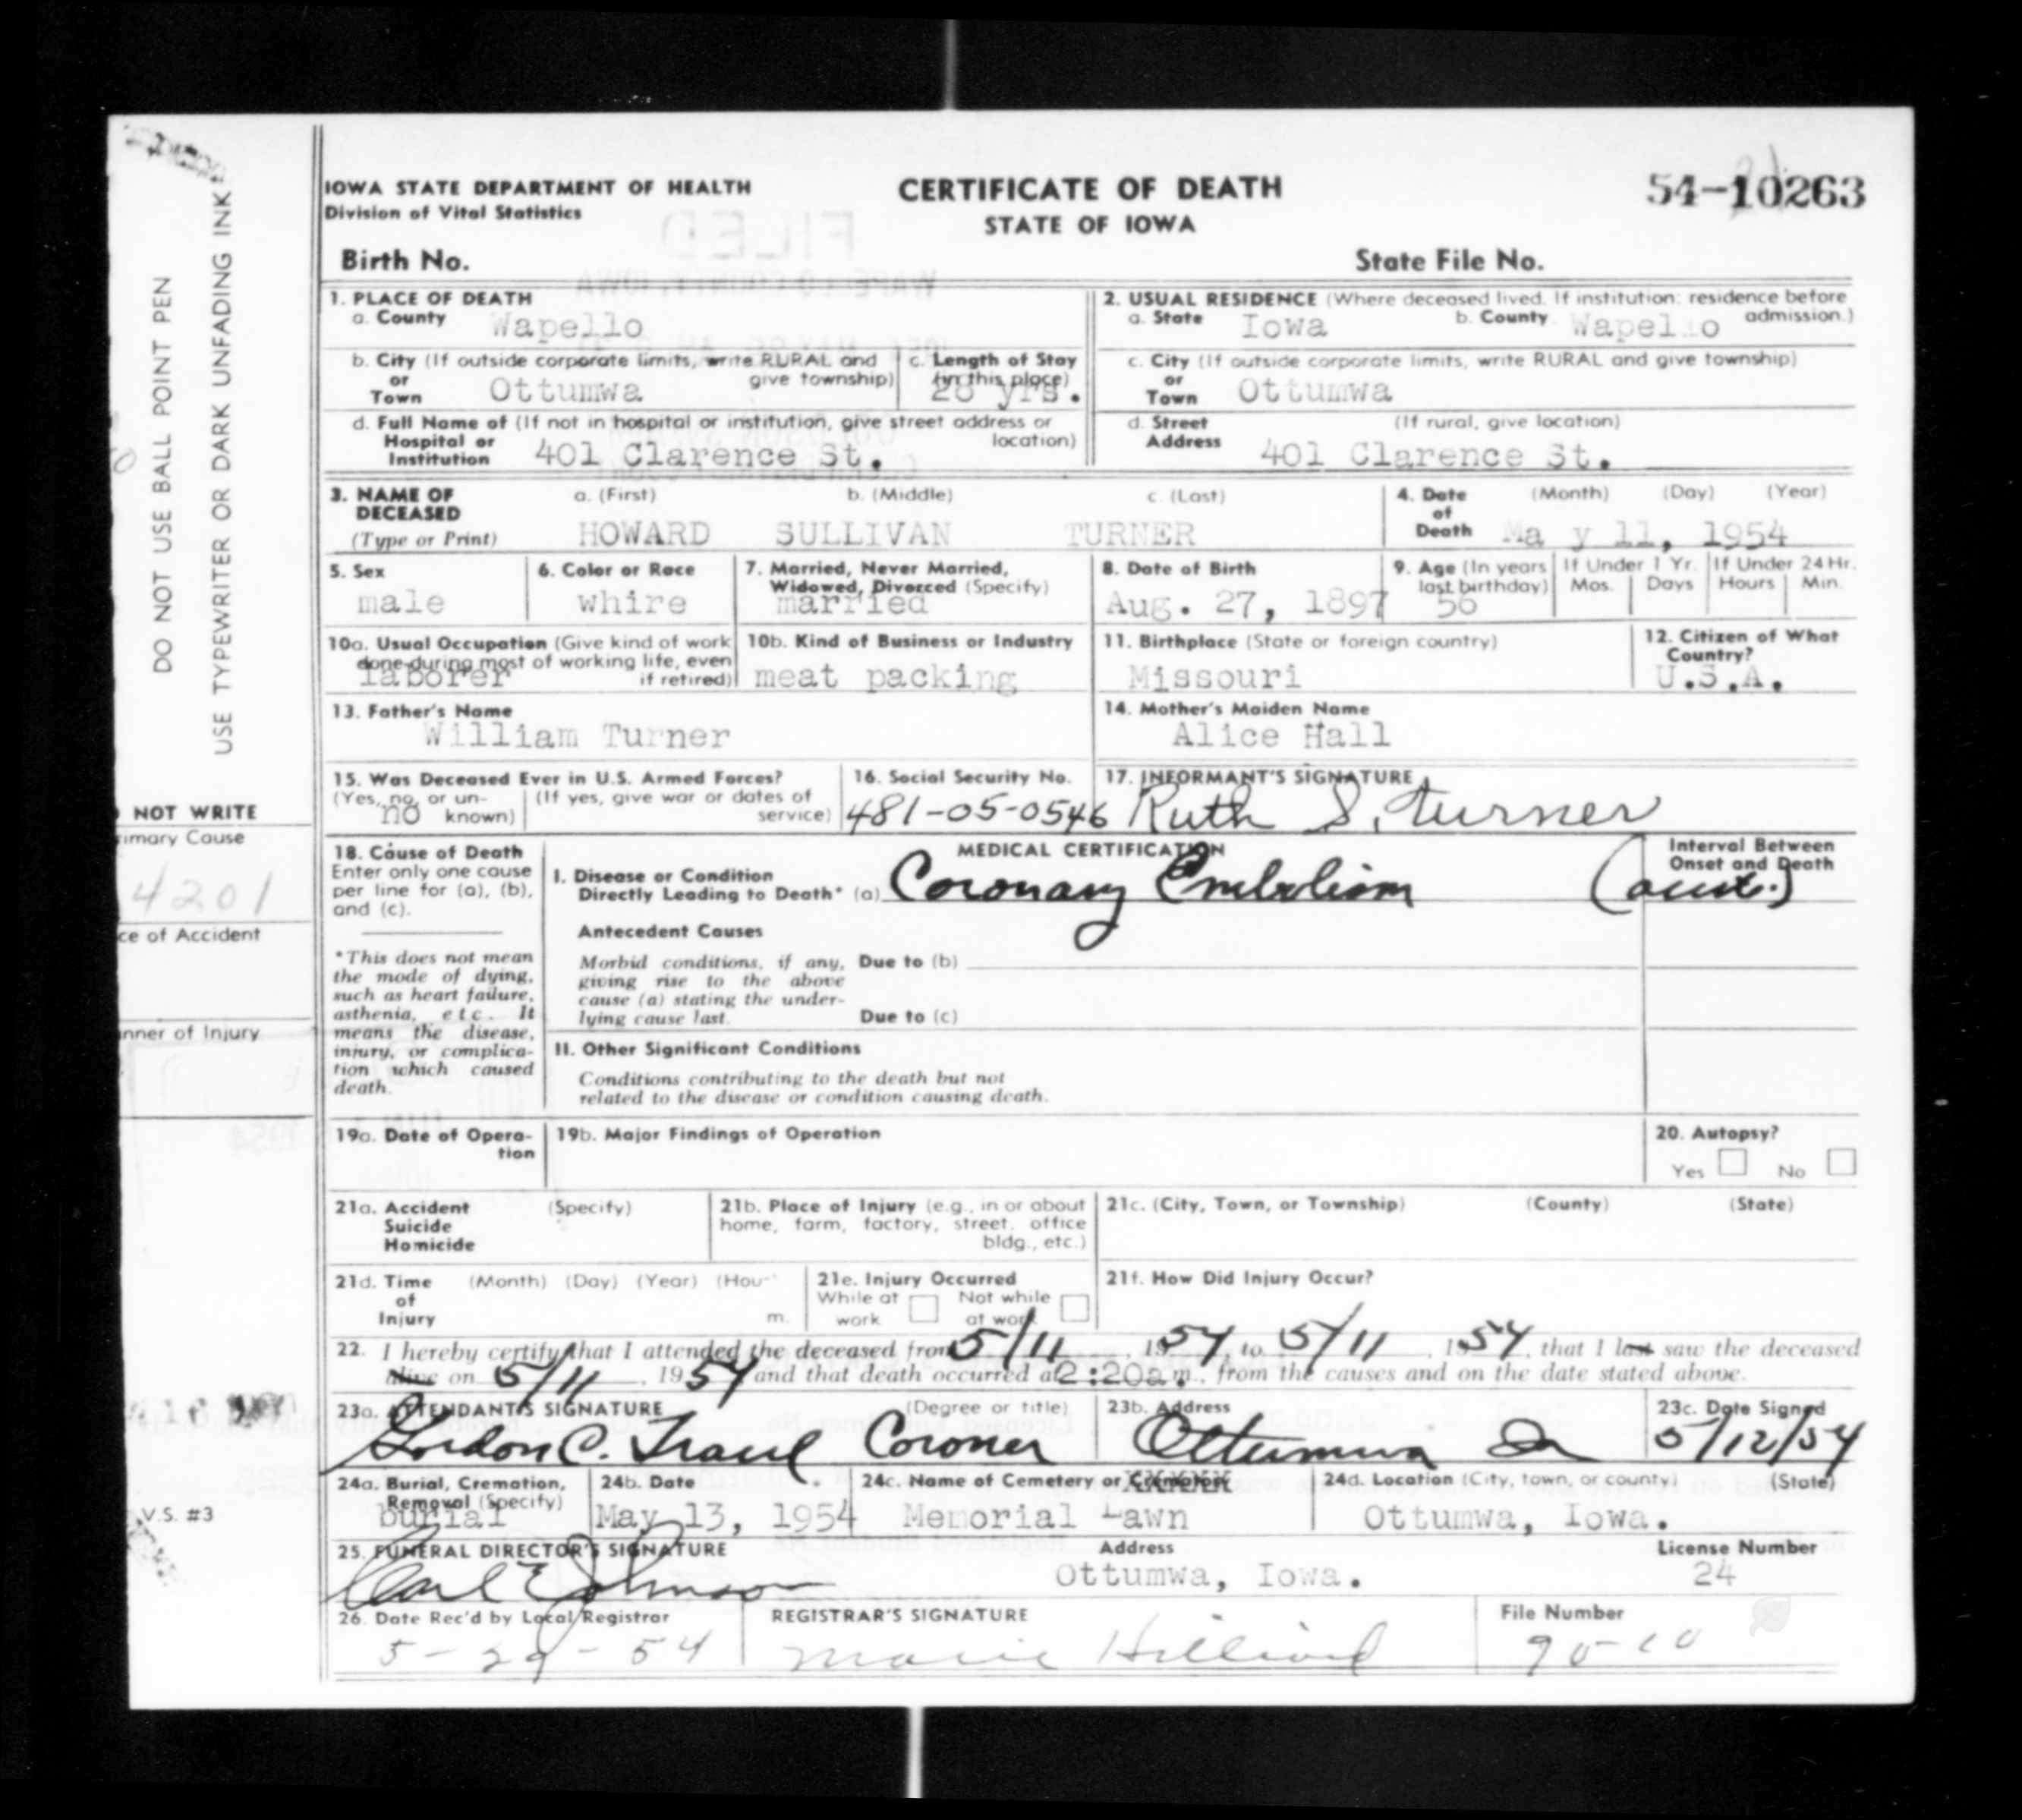 DO NOT USE BALL POINT PEN
USE TYPEWRITER OR DARK UNFADING INK
IOWA STATE DEPARTMENT OF HEALTH
Division of Vital Statistics
CERTIFICATE OF DEATH
STATE OF IOWA
54-10263
Birth No.
State File No.
1. PLACE OF DEATH
a. County Wapello
b. City (If outside corporate limits, write RURAL and give township)
or Town Ottumwa
c. Length of Stay (in this place)
28 yrs.
d. Full Name of (If not in hospital or institution, give street address or location)
Hospital or Institution 401 Clarence St.
2. USUAL RESIDENCE (Where deceased lived. If institution: residence before admission.)
a. State Iowa b. County Wapello
c. City (If outside corporate limits, write RURAL and give township)
or Town Ottumwa
d. Street Address (If rural, give location)
401 Clarence St.
3. NAME OF DECEASED
(Type or Print)
a. (First) b. (Middle) c. (Last)
HOWARD SULLIVAN TURNER
4. Date of Death (Month) (Day) (Year)
Ma y 11, 1954
5. Sex
male
6. Color or Race
whire
7. Married, Never Married, Widowed, Divorced (Specify)
married
8. Date of Birth
Aug. 27, 1897
9. Age (In years last birthday)
56
If Under 1 Yr.
Mos. Days
If Under 24 Hr.
Hours Min.
10a. Usual Occupation (Give kind of work done during most of working life, even if retired)
laborer
10b. Kind of Business or Industry
meat packing
11. Birthplace (State or foreign country)
Missouri
12. Citizen of What Country?
U.S.A.
13. Father's Name
William Turner
14. Mother's Maiden Name
Alice Hall
15. Was Deceased Ever in U.S. Armed Forces?
(Yes, no, or unknown) (If yes, give war or dates of service)
no
16. Social Security No.
481-05-0546
17. INFORMANT'S SIGNATURE
Ruth S. Turner
NOT WRITE
rimary Cause
4201
ce of Accident
nner of Injury
18. Cause of Death
Enter only one cause
per line for (a), (b),
and (c).
*This does not mean
the mode of dying,
such as heart failure,
asthenia, etc. It
means the disease,
injury, or complica-
tion which caused
death.
MEDICAL CERTIFICATION
Interval Between Onset and Death
I. Disease or Condition
Directly Leading to Death* (a) Coronary Embolism (acute.)
Antecedent Causes
Morbid conditions, if any, Due to (b)
giving rise to the above
cause (a) stating the under-
lying cause last. Due to (c)
II. Other Significant Conditions
Conditions contributing to the death but not
related to the disease or condition causing death.
19a. Date of Opera-
tion
19b. Major Findings of Operation
20. Autopsy?
Yes No
21a. Accident (Specify)
Suicide
Homicide
21b. Place of Injury (e.g., in or about
home, farm, factory, street, office
bldg., etc.)
21c. (City, Town, or Township) (County) (State)
21d. Time (Month) (Day) (Year) (Hour
of
Injury m.
21e. Injury Occurred
While at work Not while at work
21f. How Did Injury Occur?
22. I hereby certify that I attended the deceased from 5/11, 1954, to 5/11, 1954, that I last saw the deceased
alive on 5/11, 1954 and that death occurred at 2:20a m., from the causes and on the date stated above.
23a. ATTENDANT'S SIGNATURE (Degree or title)
Gordon C. Traul Coroner
23b. Address
Ottumwa Ia
23c. Date Signed
5/12/54
24a. Burial, Cremation, Removal (Specify)
burial
24b. Date
May 13, 1954
24c. Name of Cemetery or Crematory
Memorial Lawn
24d. Location (City, town, or county) (State)
Ottumwa, Iowa.
V.S. #3
25. FUNERAL DIRECTOR'S SIGNATURE
Carl E Johnson
Address
Ottumwa, Iowa.
License Number
24
26. Date Rec'd by Local Registrar
5-29-54
REGISTRAR'S SIGNATURE
Marie Hilliard
File Number
90-10